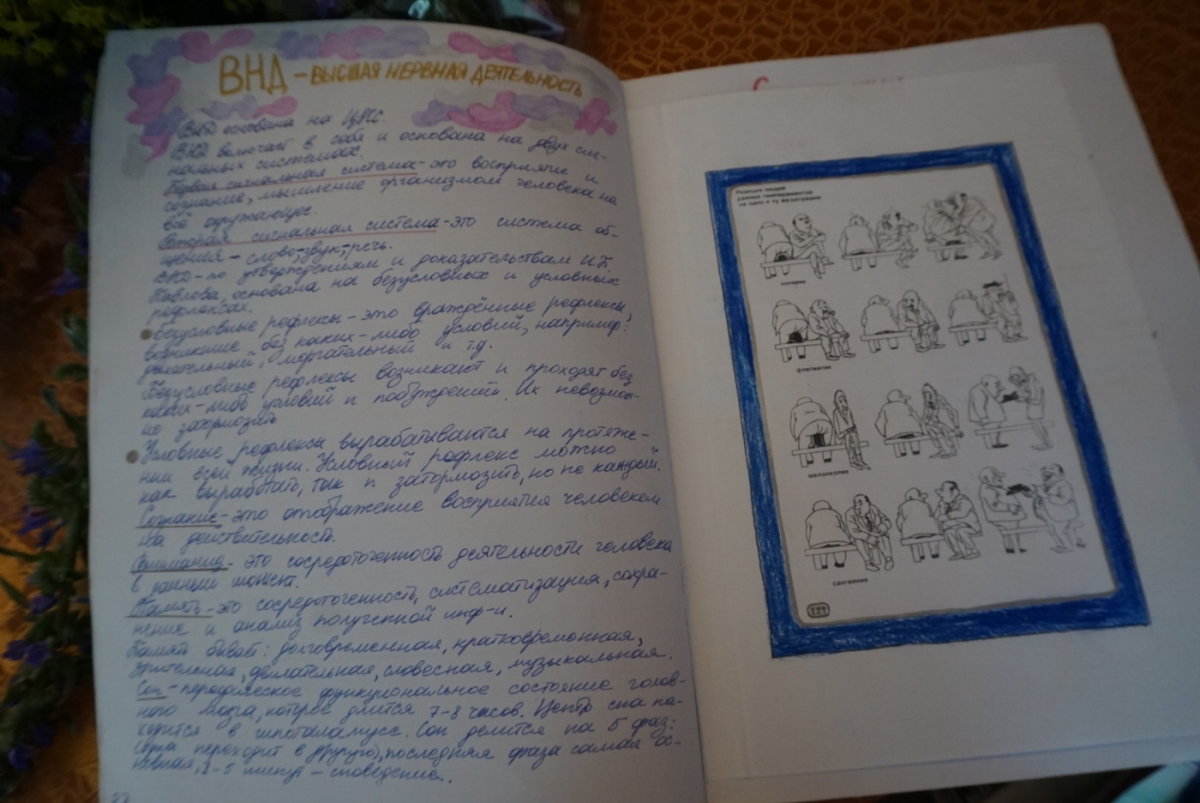 ВНД – ВЫСШАЯ НЕРВНАЯ ДЕЯТЕЛЬНОСТЬ
ВНД основана на ЦНС.
ВНД включает в себя и основана на двух сиг-
нальных системах.
Первая сигнальная система – это восприятие и
сознание, мышление организмом человека на
всё окружающее.
Вторая сигнальная система – это система об-
щения – слово, звук, речь.
ВНД – по утверждениям и доказательствам И.П.
Павлова, основана на безусловных и условных
рефлексах.
Безусловные рефлексы – это врождённые рефлексы,
возникшие без каких-либо условий, например:
мигательный и т.д.
Безусловные рефлексы возникают и проходят без
каких-либо условий и побуждений. Их невозмож-
но затормозить
Условные рефлексы вырабатываются на протяже-
нии всей жизни. Условный рефлекс можно
как выработать, так и затормозить, но не каждый.
Сознание – это отображение восприятия человеком
на действительность.
Внимание – это сосредоточенность деятельности человека
в данный момент.
Память – это сосредоточенность, систематизация, сохра-
нение и анализ полученной инф-и.
Память бывает: долговременная, кратковременная,
зрительная, словесная, музыкальная.
Сон – периодическое функциональное состояние голов-
ного мозга, которое длится 7-8 часов. Центр сна на-
ходится в гипоталамусе. Сон делится на 5 фаз:
одна переходит в другую, последняя фаза самая
3-5 минут – сновидение.
Реакция людей
разных темпераментов
на одну и ту же ситуацию
холерик
флегматик
меланхолик
сангвиник
121